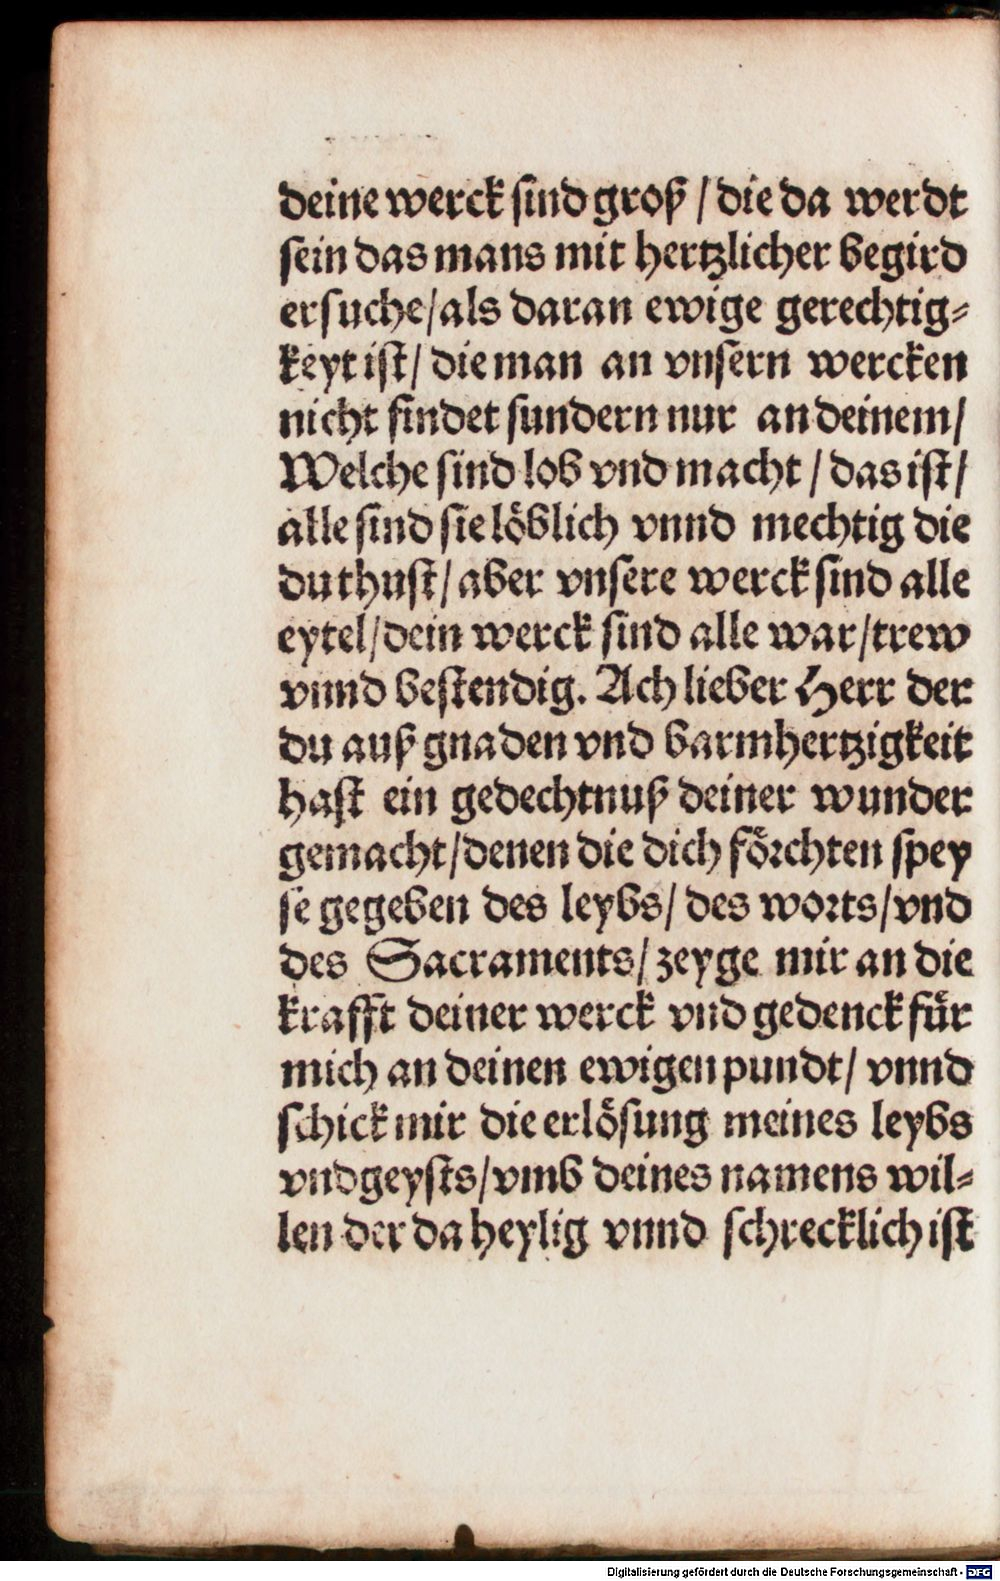 deine werck sind groß / die da werdt
sein das mans mit hertzlicher begird
ersuche / als daran ewige gerechtig⸗
keyt ist / die man an vnsern wercken
nicht findet sundern nur an deinem /
Welche sind lob vnd macht / das ist /
alle sind sie löblich vnnd mechtig die
du thust / aber vnsere werck sind alle
eytel / dein werck sind alle war / trew
vnnd bestendig. Ach lieber Herr der
du auß gnaden vnd barmhertzigkeit
hast ein gedechtnuß deiner wunder
gemacht / denen die dich förchten spey
se gegeben des leybs / des worts / vnd
des Sacraments / zeyge mir an die
krafft deiner werck vnd gedenck für
mich an deinen ewigen pundt / vnnd
schick mir die erlösung meines leybs
vnd geysts / vmb deines namens wil⸗
len der da heylig vnnd schrecklich ist
Digitalisierung gefördert durch die Deutsche Forschungsgemeinschaft - DFG